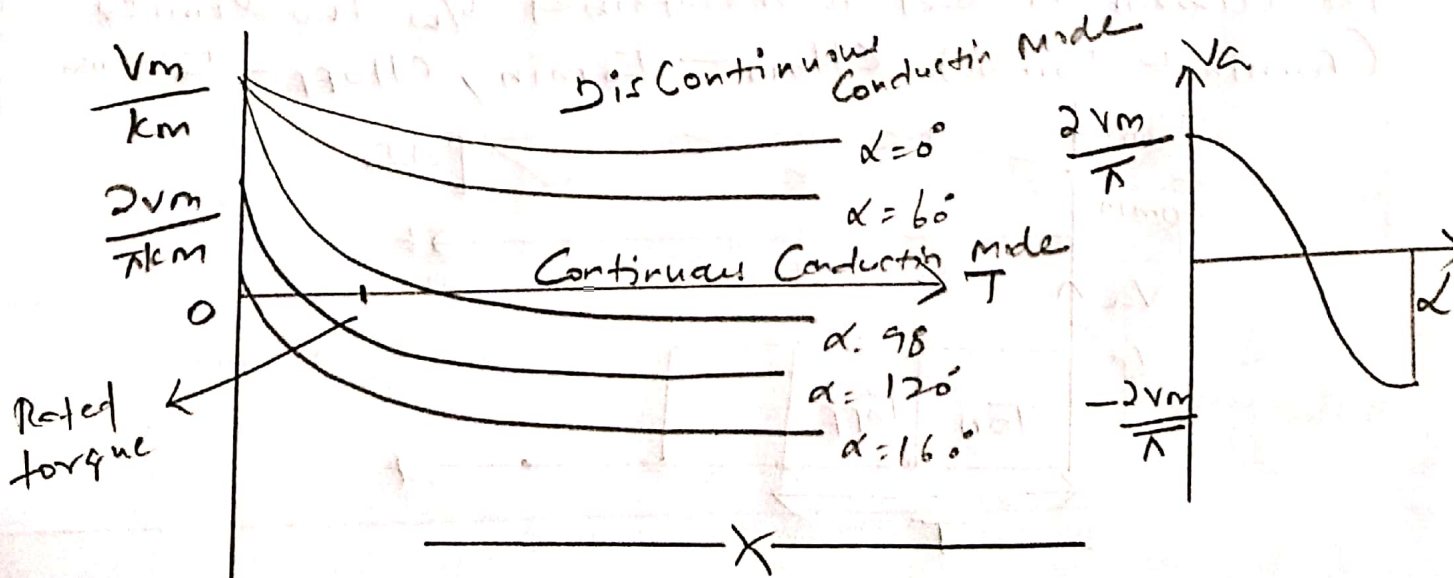 Vm
km
2Vm
πkm
0
Rated
torque
DisContinuous
Conductin Mode
α=0°
α=60°
Continuous Conductin Mode
T
α. 98
α=120°
α=160°
Va
2Vm
π
-2Vm
π
α
X